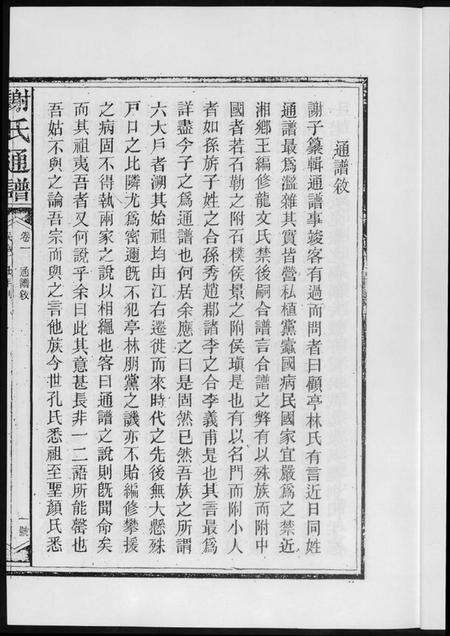 通譜敘
謝子纂輯通譜事竣客有過而問者曰顧亭林氏有言近日同姓
通譜最爲濫雜其實皆營私植黨蠹國病民國家宜嚴爲之禁近
湘鄉王編修龍文氏禁後嗣合譜言合譜之弊有以殊族而附中
國者如石勒之附石樸侯景之附侯瑱是也有以名門而附小人
者如孫旂子姓之合孫秀趙郡諸李之合李義甫是也其言最爲
詳盡今子之爲通譜也何居余應之曰是固然已然吾族之所謂
六大戶者溯其始祖均由江右遷徙而來時代之先後無大懸殊
戸口之比隣尤爲密邇旣不犯亭林朋黨之譏亦不貽編修攀援
之病固不得執兩家之說以相繩也客曰通譜之說則旣聞命矣
而其祖夷吾者又何說乎余曰此其意甚長非一二語所能罄也
吾姑不與之論吾宗而與之言他族今世孔氏悉祖至聖顏氏悉
謝氏通譜
卷一
通譜敘
一號